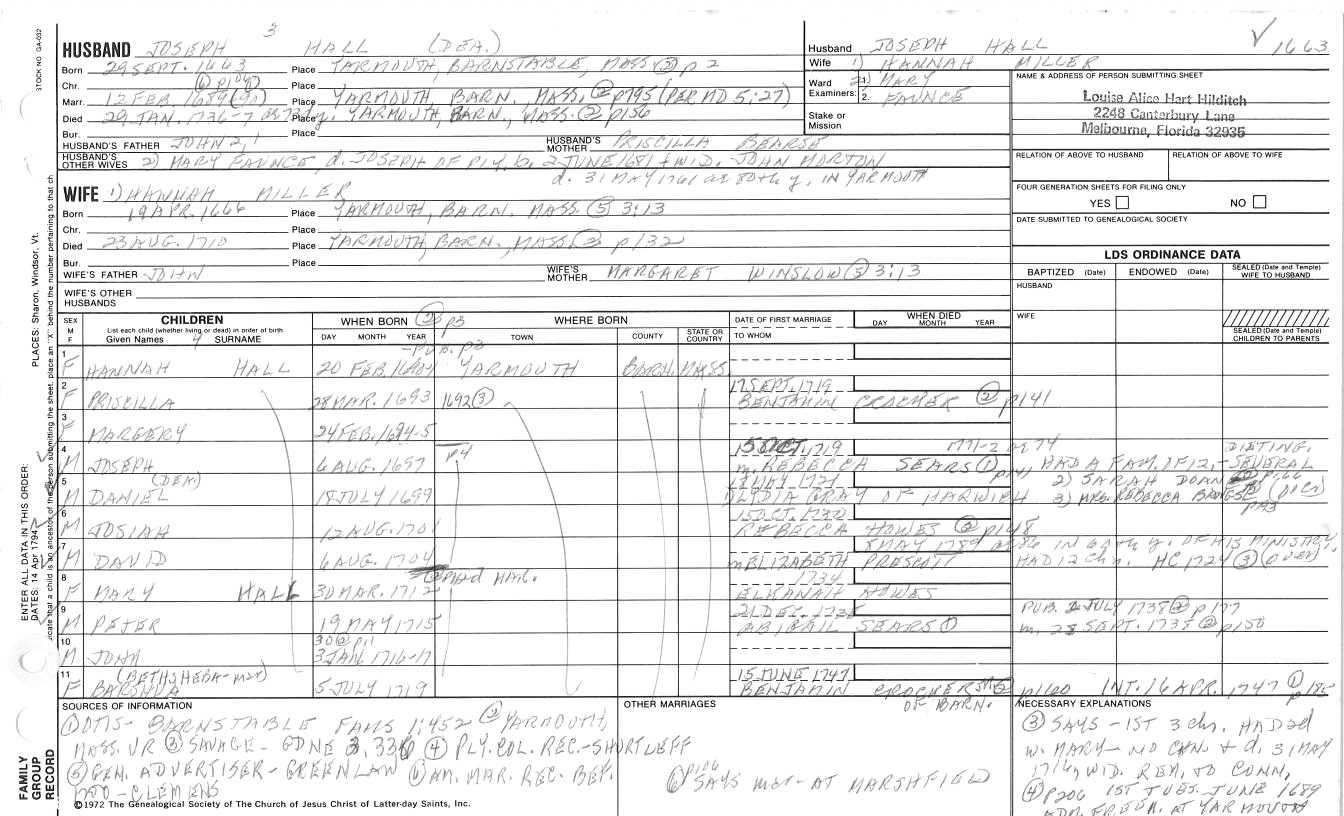 3
HUSBAND JOSEPH HALL (DEA.)
Husband JOSEPH HALL √ 1663
Born 29 SEPT. 1663 Place YARMOUTH, BARNSTABLE, MASS ② p 2
Wife 1) HANNAH MILLER
Chr. ⑥ p104 Place
Ward 2) MARY
Examiners: 2. FAUNCE
Marr. 12 FEB. 1689(90) Place YARMOUTH, BARN., MASS. ② p795 (PER MD 5:27)
Died 29 JAN. 1736-7 Place YARMOUTH, BARN., MASS. ② p156
Stake or Mission
Bur. Place
HUSBAND'S FATHER JOHN 2, 1 HUSBAND'S MOTHER PRISCILLA BEARSE
HUSBAND'S OTHER WIVES 2) MARY FAUNCE d. JOSEPH OF PLY. b. 2 JUNE 1681 + WID. JOHN MORTON
d. 31 MAY 1761 ae 80th y. IN YARMOUTH
NAME & ADDRESS OF PERSON SUBMITTING SHEET
Louise Alice Hart Hilditch
2248 Canterbury Lane
Melbourne, Florida 32935
RELATION OF ABOVE TO HUSBAND RELATION OF ABOVE TO WIFE
FOUR GENERATION SHEETS FOR FILING ONLY
YES NO
DATE SUBMITTED TO GENEALOGICAL SOCIETY
WIFE 1) HANNAH MILLER
Born 19 APR. 1666 Place YARMOUTH, BARN. MASS. ⑤ 3:13
Chr. Place
Died 23 AUG. 1710 Place YARMOUTH, BARN., MASS. ② p132
Bur. Place
WIFE'S FATHER JOHN WIFE'S MOTHER MARGARET WINSLOW ⑤ 3:13
WIFE'S OTHER HUSBANDS
LDS ORDINANCE DATA
BAPTIZED (Date) ENDOWED (Date) SEALED (Date and Temple) WIFE TO HUSBAND
HUSBAND
WIFE
SEALED (Date and Temple) CHILDREN TO PARENTS
SEX M F CHILDREN
List each child (whether living or dead) in order of birth
Given Names 4 SURNAME
WHEN BORN ② p3
DAY MONTH YEAR
WHERE BORN
TOWN COUNTY STATE OR COUNTRY
DATE OF FIRST MARRIAGE
TO WHOM
WHEN DIED
DAY MONTH YEAR
1 F HANNAH HALL 20 FEB. YARMOUTH BARN. MASS.
2 F PRISCILLA 28 MAR. 1693 1692 ③ 17 SEPT. 1719
BENJAMIN CROCKER ② p141
3 F MARGERY 24 FEB. 1694-5
4 M JOSEPH (DEA.) 6 AUG. 1697 p4 15 OCT. 1719 1771-2 ae 74
m. REBECCA SEARS ① p141 HAD A FAM. OF 12, - SEVERAL
5 M DANIEL 18 JULY 1699 MAY 1721 2) SARAH DOAN
LYDIA GRAY OF HARWICH 3) MRS. REBECCA BANGS
6 M JOSIAH 12 AUG. 1701 15 OCT. 1730
REBECCA HOWES ② p148
7 M DAVID 6 AUG. 1704 8 MAY 1789 ae 86 IN 60th y. OF HIS MINISTRY,
m. ELIZABETH PRESCOTT HAD 12 Chn. HC 1724 ③ (OVER)
8 F MARY HALL 30 MAR. 1712 1734
ELKANAH HOWES
9 M PETER 19 MAY 1715 21 DEC. 1738 PUB. 2 JULY 1738 ② p177
ABIGAIL SEARS ① m. 28 SEPT. 1738 ② p150
10 M JOHN 30 ② p11
3 JAN. 1716-17
11 F (BETHSHEBA-mst) BARSHUA 5 JULY 1719 15 JUNE 1747
BENJAMIN CROCKER OF BARN. p160 INT. 16 APR. 1747 ① p185
SOURCES OF INFORMATION
① OTIS - BARNSTABLE FAMS 1:452 ② YARMOUTH,
MASS. VR ③ SAVAGE - GDNE 2:336 ④ PLY. COL. REC. - SHURTLEFF
⑤ GEN. ADVERTISER - GREENLAW ⑥ AM. MAR. REC. BEF.
1700 - CLEMENS
OTHER MARRIAGES
⑥ p106 SAYS mst - AT MARSHFIELD
NECESSARY EXPLANATIONS
③ SAYS - 1ST 3 chn. HAD 2d
w. MARY - NO CHN. + d. 31 MAY
1761, WID. REM. TO CONN,
④ p206 1ST TUES. JUNE 1689
ADM. FREEM. AT YARMOUTH
©1972 The Genealogical Society of The Church of Jesus Christ of Latter-day Saints, Inc.
FAMILY GROUP RECORD
STOCK NO. GA-032
PLACES: Sharon, Windsor, Vt.
ENTER ALL DATA IN THIS ORDER:
DATES: 14 Apr 1794